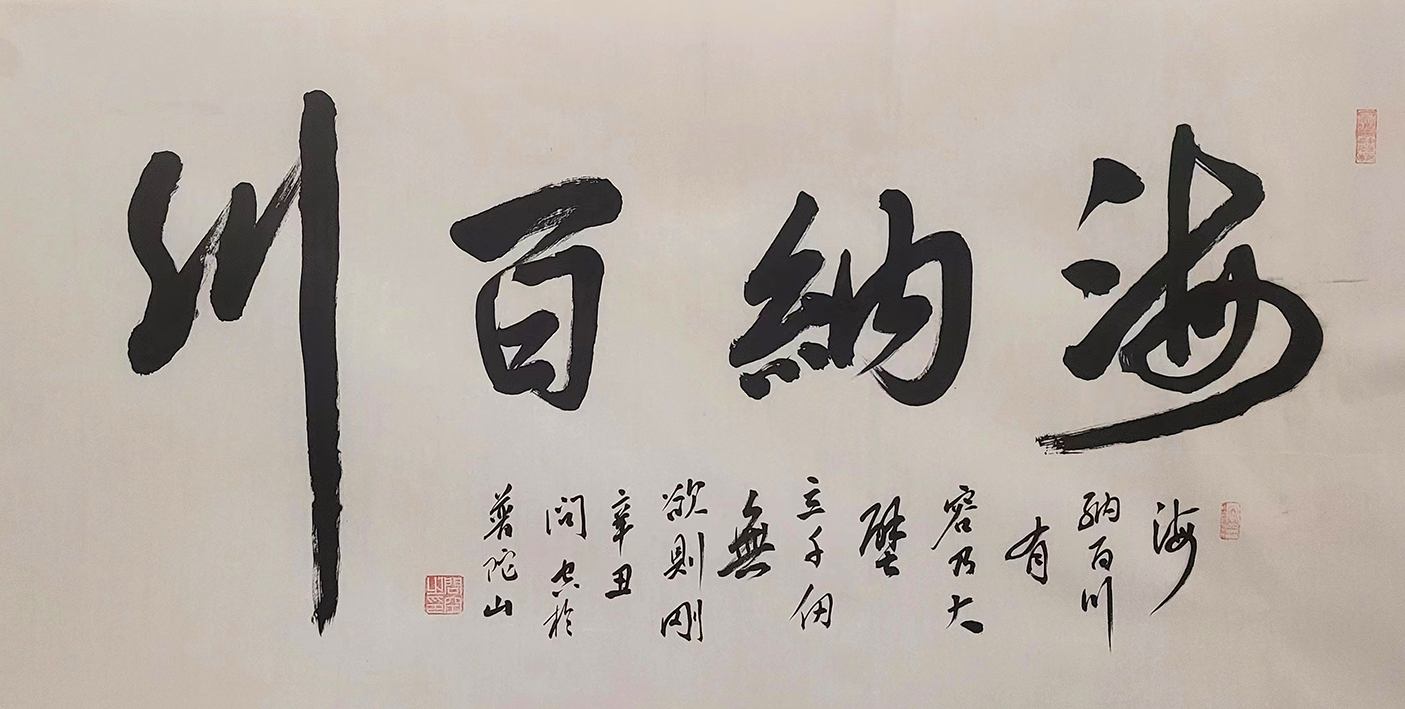 海納百川
海
納百川
有
容乃大
壁
立千仞
無
欲則剛
辛丑
問空於
普陀山